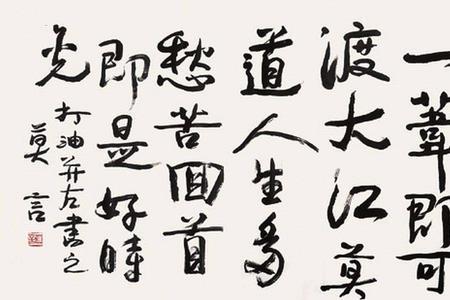 一葦即可
渡大江莫
道人生多
愁苦回首
即是好時
光
打油并左書之
莫言